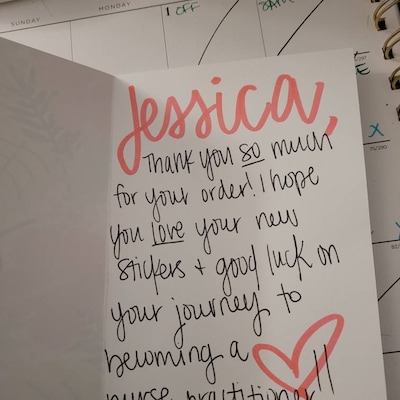 SUNDAY
MONDAY
1 OFF
Jessica,
Thank you so much
for your order! I hope
you love your new
stickers + good luck on
your journey to
becoming a
nurse practitioner!!
X